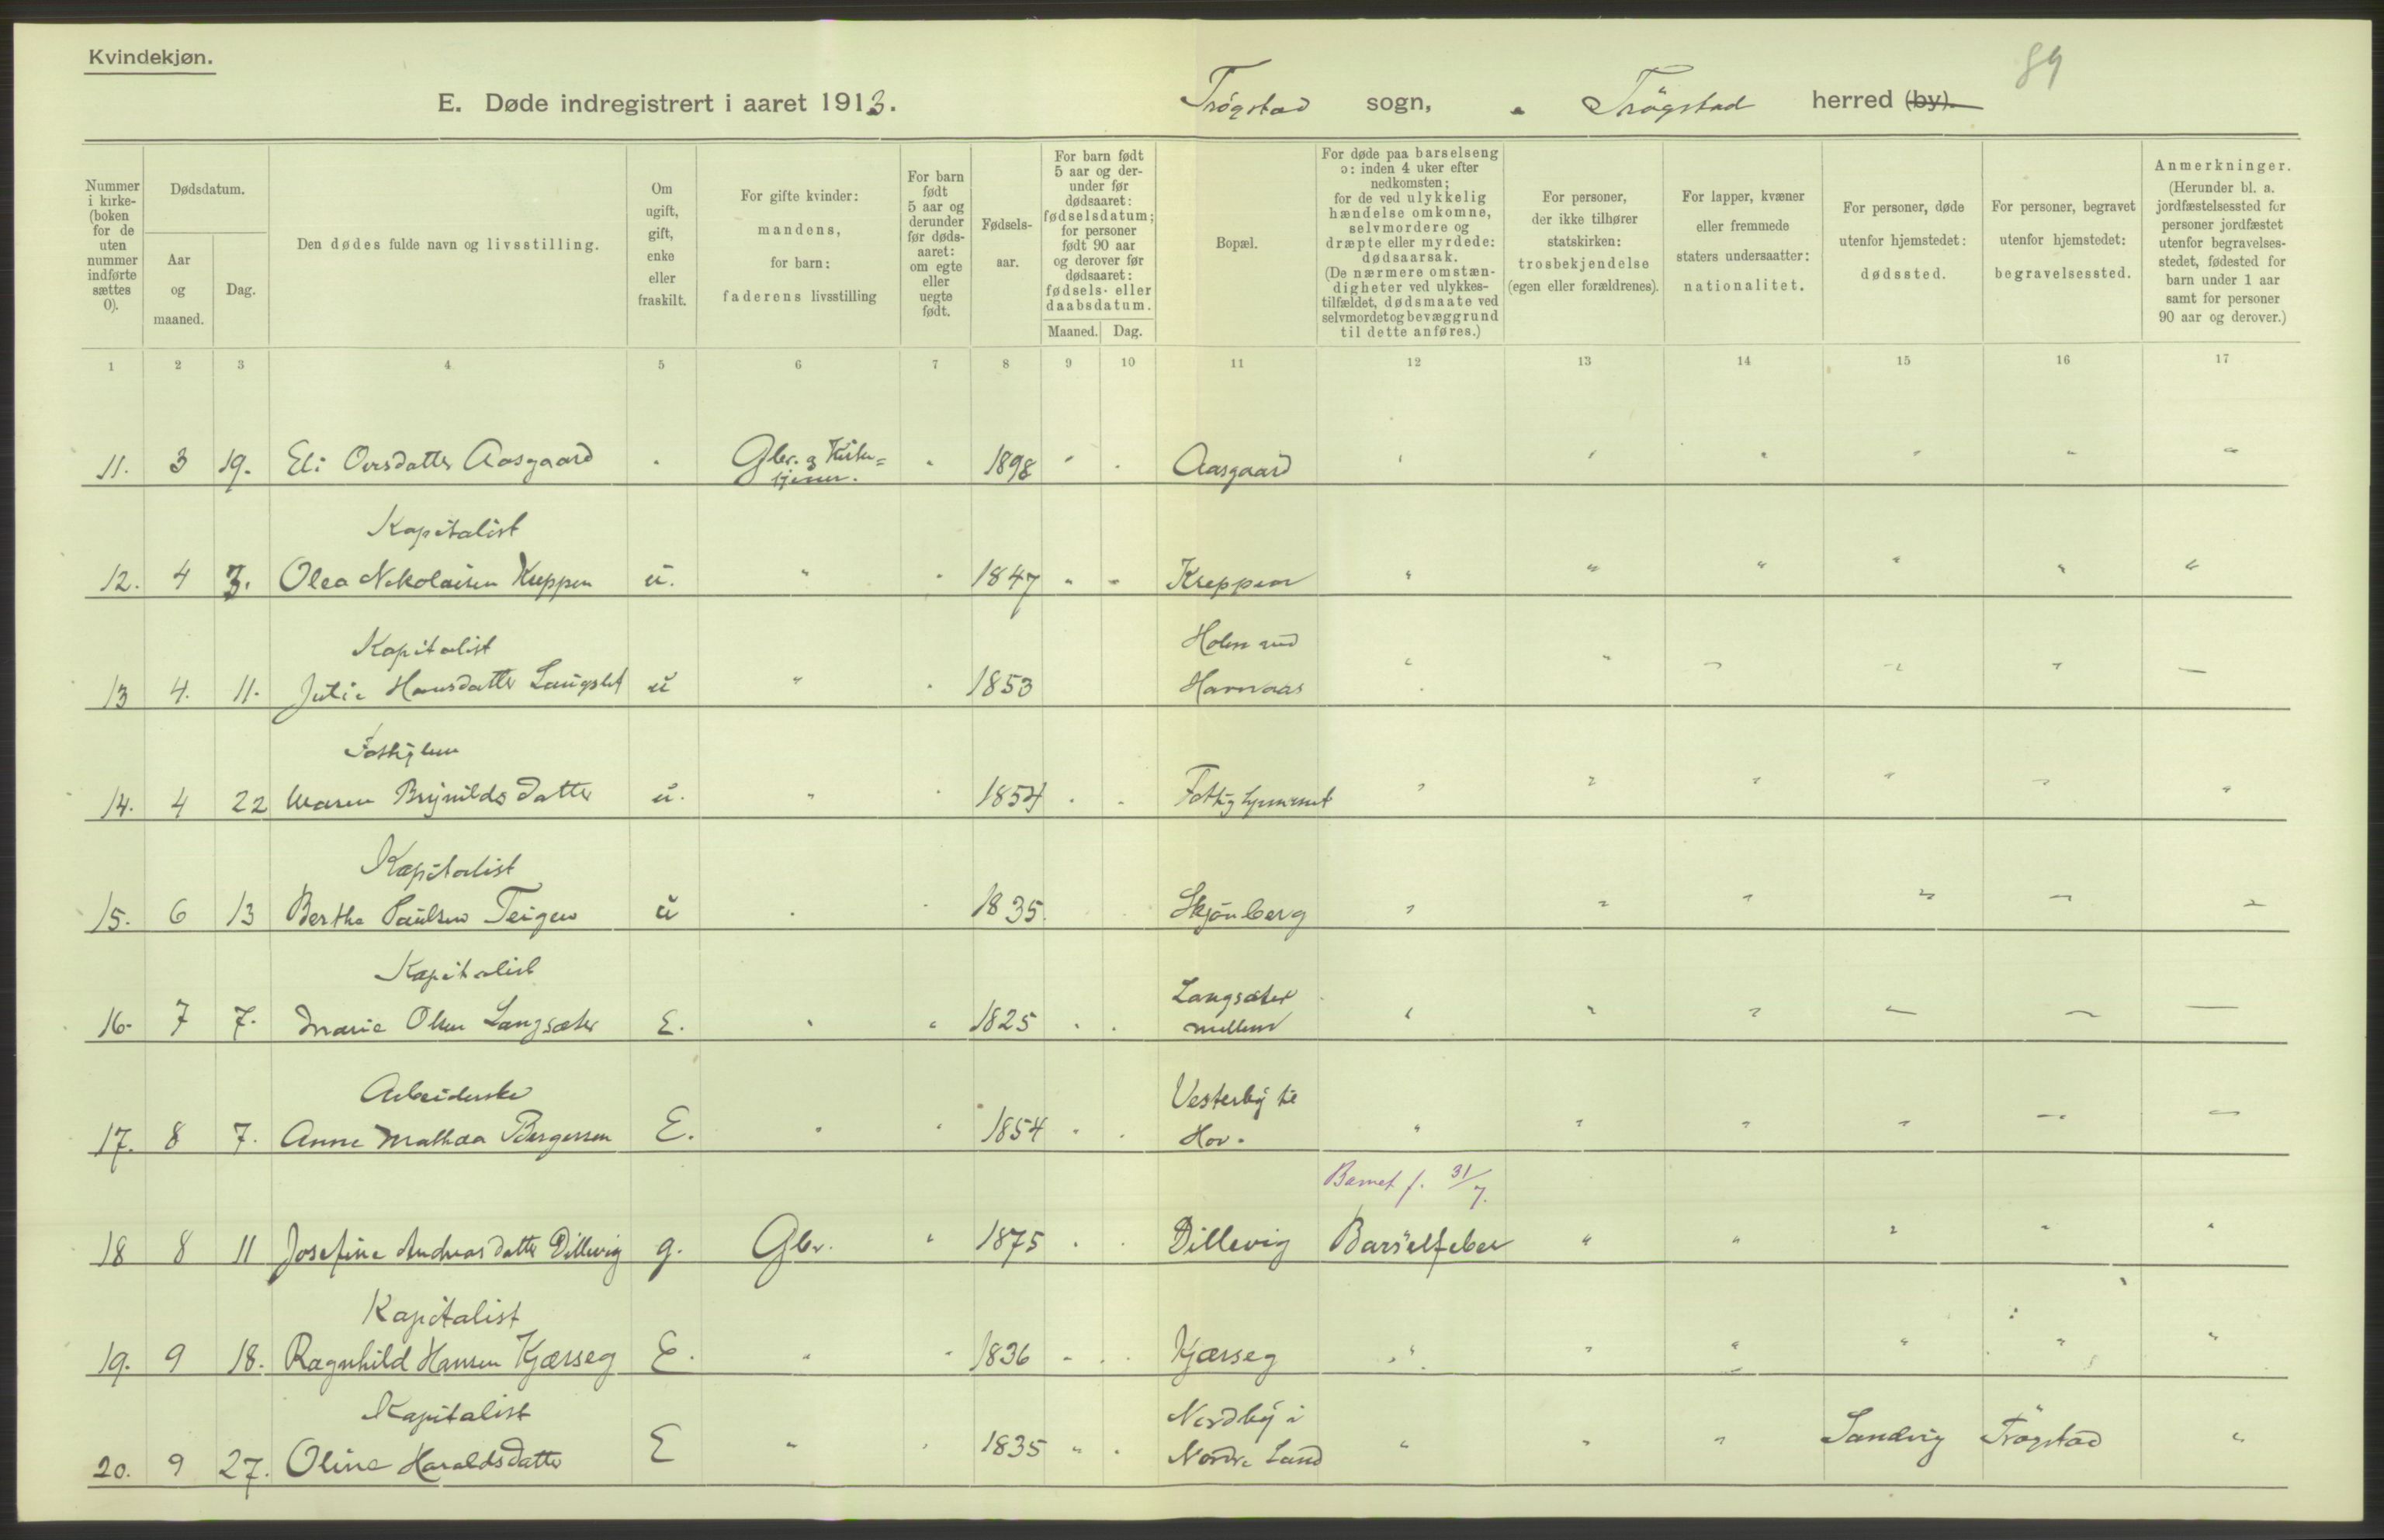 Kvindekjøn.
89
E. Døde indregistrert i aaret 1913. Trögstad sogn, Trögstad herred (by).
Nummer i kirke-(boken for de uten nummer indførte sættes 0).
Dødsdatum.
Aar og maaned.
Dag.
Den dødes fulde navn og livsstilling.
Om ugift, gift, enke eller fraskilt.
For gifte kvinder: mandens, for barn: faderens livsstilling
For barn født 5 aar og derunder før døds-aaret: om egte eller uegte født.
Fødsels-aar.
For barn født 5 aar og der-under før dødsaaret: fødselsdatum; for personer født 90 aar og derover før dødsaaret: fødsels- eller daabsdatum.
Maaned. Dag.
Bopæl.
For døde paa barselseng ɔ: inden 4 uker efter nedkomsten; for de ved ulykkelig hændelse omkomne, selvmordere og dræpte eller myrdede: dødsaarsak. (De nærmere omstæn-digheter ved ulykkes-tilfældet, dødsmaate ved selvmordet og bevæggrund til dette anføres.)
For personer, der ikke tilhører statskirken: trosbekjendelse (egen eller forældrenes).
For lapper, kvæner eller fremmede staters undersaatter: nationalitet.
For personer, døde utenfor hjemstedet: dødssted.
For personer, begravet utenfor hjemstedet: begravelsessted.
Anmerkninger. (Herunder bl. a. jordfæstelsessted for personer jordfæstet utenfor begravelses-stedet, fødested for barn under 1 aar samt for personer 90 aar og derover.)
1 2 3 4 5 6 7 8 9 10 11 12 13 14 15 16 17
11. 3 19. Eli Oversdatter Aasgaard " Gbr. og Kirke= " 1898 " " Aasgaard " " " " " "
tjener.
Kapitalist
12. 4 3. Olea Nikolaisen Kreppen u. " " 1847 " " Kreppen " " " " " "
Kapitalist Holm and
13 4. 11. Julie Hansdatter Langset u " " 1853 Havnaas " " " " " —
Fattiglem
14. 4 22 Maren Brynildsdatter u. " " 1854 " " Fattiglemmet " " " " " "
Kapitalist
15. 6 13 Berthe Paulsen Teigen u " " 1835. Skjönberg " " " " " "
Kapitalist Langsæter
16. 7 7. Marie Olsen Langsæter E. " " 1825 " " mellem " " " " " —
Arbeiderske Vesterby til
17. 8 7. Anne Mathea Bergersen E. " " 1854 " " Hov. " " " " " "
Barnet f. 31/7.
18 8 11 Josefine Andreasdatter Dillevig g. Gbr. " 1875 " " Dillevig Barselfeber " " " " "
Kapitalist
19. 9 18. Ragnhild Hansen Kjærseg E. " " 1836 " " Kjærseg " " " " " "
Kapitalist Nordby i
20. 9 27. Oline Haraldsdatter E " " 1835 " " Nordre Land " " " Sandvig Trögstad "